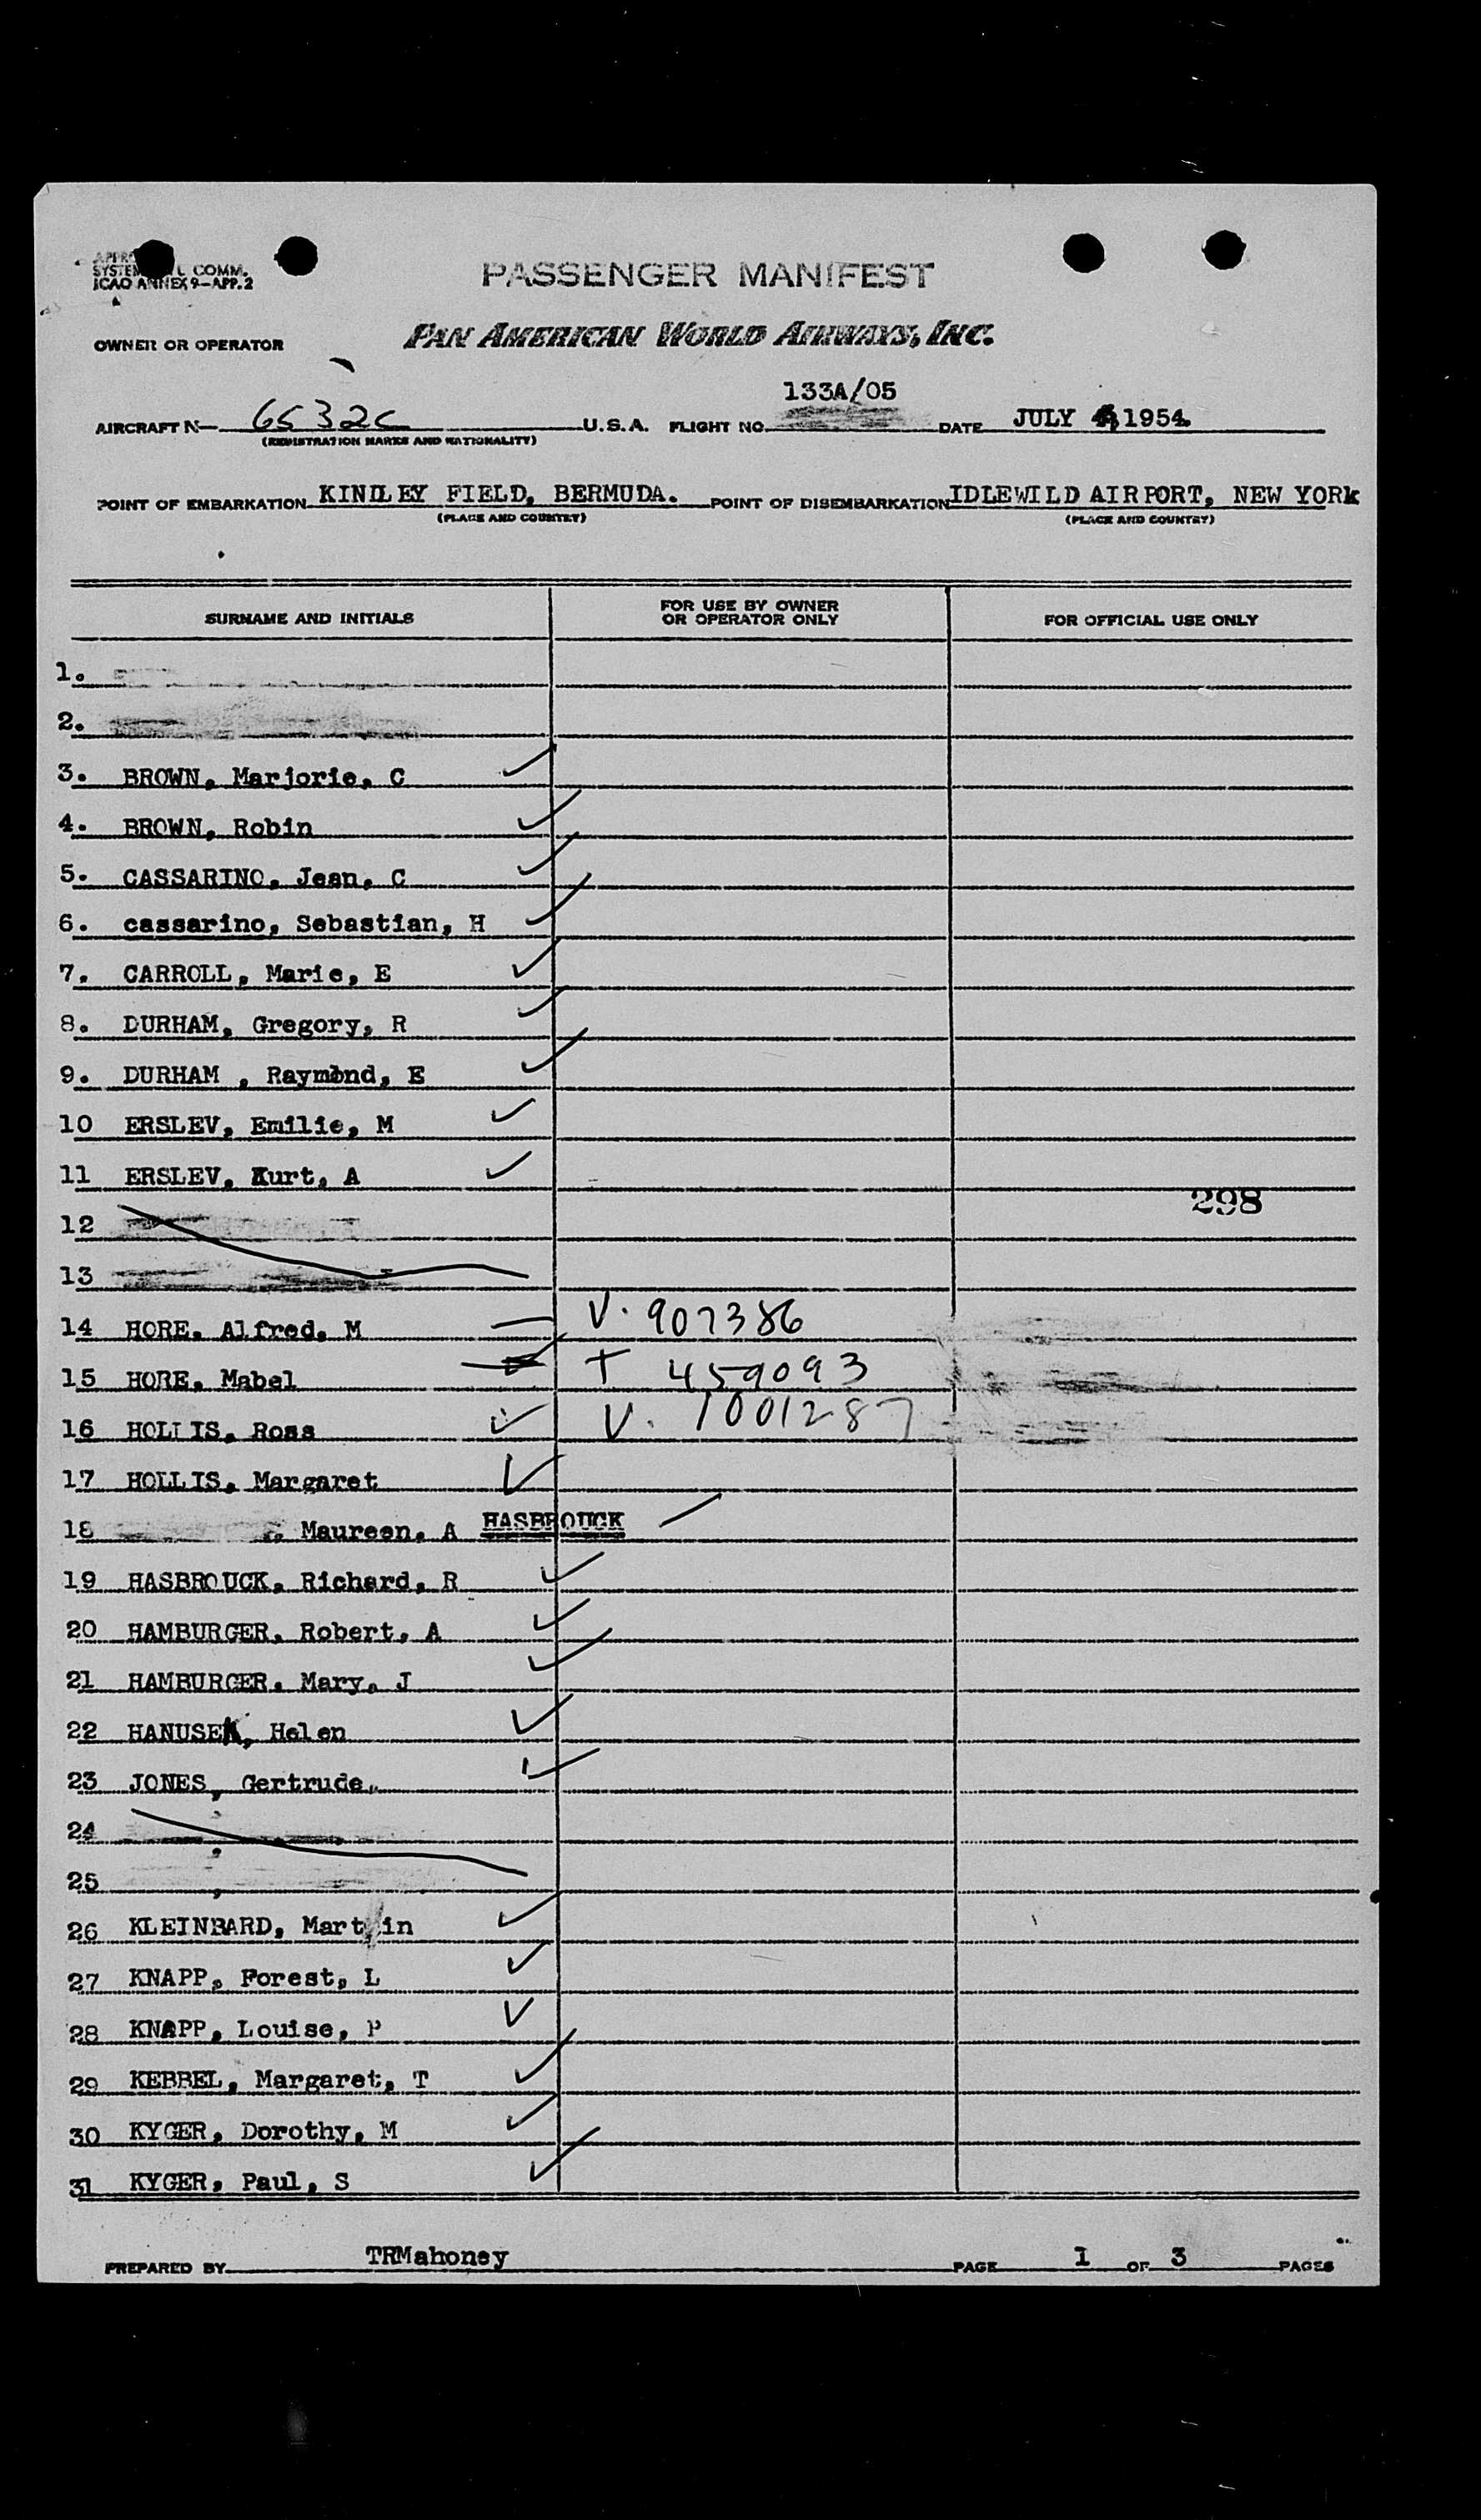 SYSTEM COMM.
ICAO ANNEX 9-APP. 2
PASSENGER MANIFEST
OWNER OR OPERATOR PAN AMERICAN WORLD AIRWAYS, INC.
133A/05
AIRCRAFT N- 6532C U.S.A. FLIGHT NO. DATE JULY 1954.
(REGISTRATION MARKS AND NATIONALITY)
POINT OF EMBARKATION KINDLEY FIELD, BERMUDA. POINT OF DISEMBARKATION IDLEWILD AIRPORT, NEW YORk
(PLACE AND COUNTRY) (PLACE AND COUNTRY)
SURNAME AND INITIALS FOR USE BY OWNER OR OPERATOR ONLY FOR OFFICIAL USE ONLY
1.
2.
3. BROWN, Marjorie, C
4. BROWN, Robin
5. CASSARINO, Jean, C
6. cassarino, Sebastian, H
7. CARROLL, Marie, E
8. DURHAM, Gregory, R
9. DURHAM , Raymond, E
10 ERSLEV, Emilie, M
11 ERSLEV, Kurt, A
298
12
13
14 HORE, Alfred, M V. 907386
15 HORE, Mabel T 459093
16 HOLLIS, Ross V. 1001287
17 HOLLIS, Margaret
18 , Maureen, A HASBROUCK
19 HASBROUCK, Richard, R
20 HAMBURGER, Robert, A
21 HAMBURGER, Mary, J
22 HANUSEK, Helen
23 JONES, Gertrude,
24
25
26 KLEINBARD, Martin
27 KNAPP, Forest, L
28 KNAPP, Louise, P
29 KEBBEL, Margaret, T
30 KYGER, Dorothy, M
31 KYGER, Paul, S
PREPARED BY TRMahoney PAGE 1 OF 3 PAGES